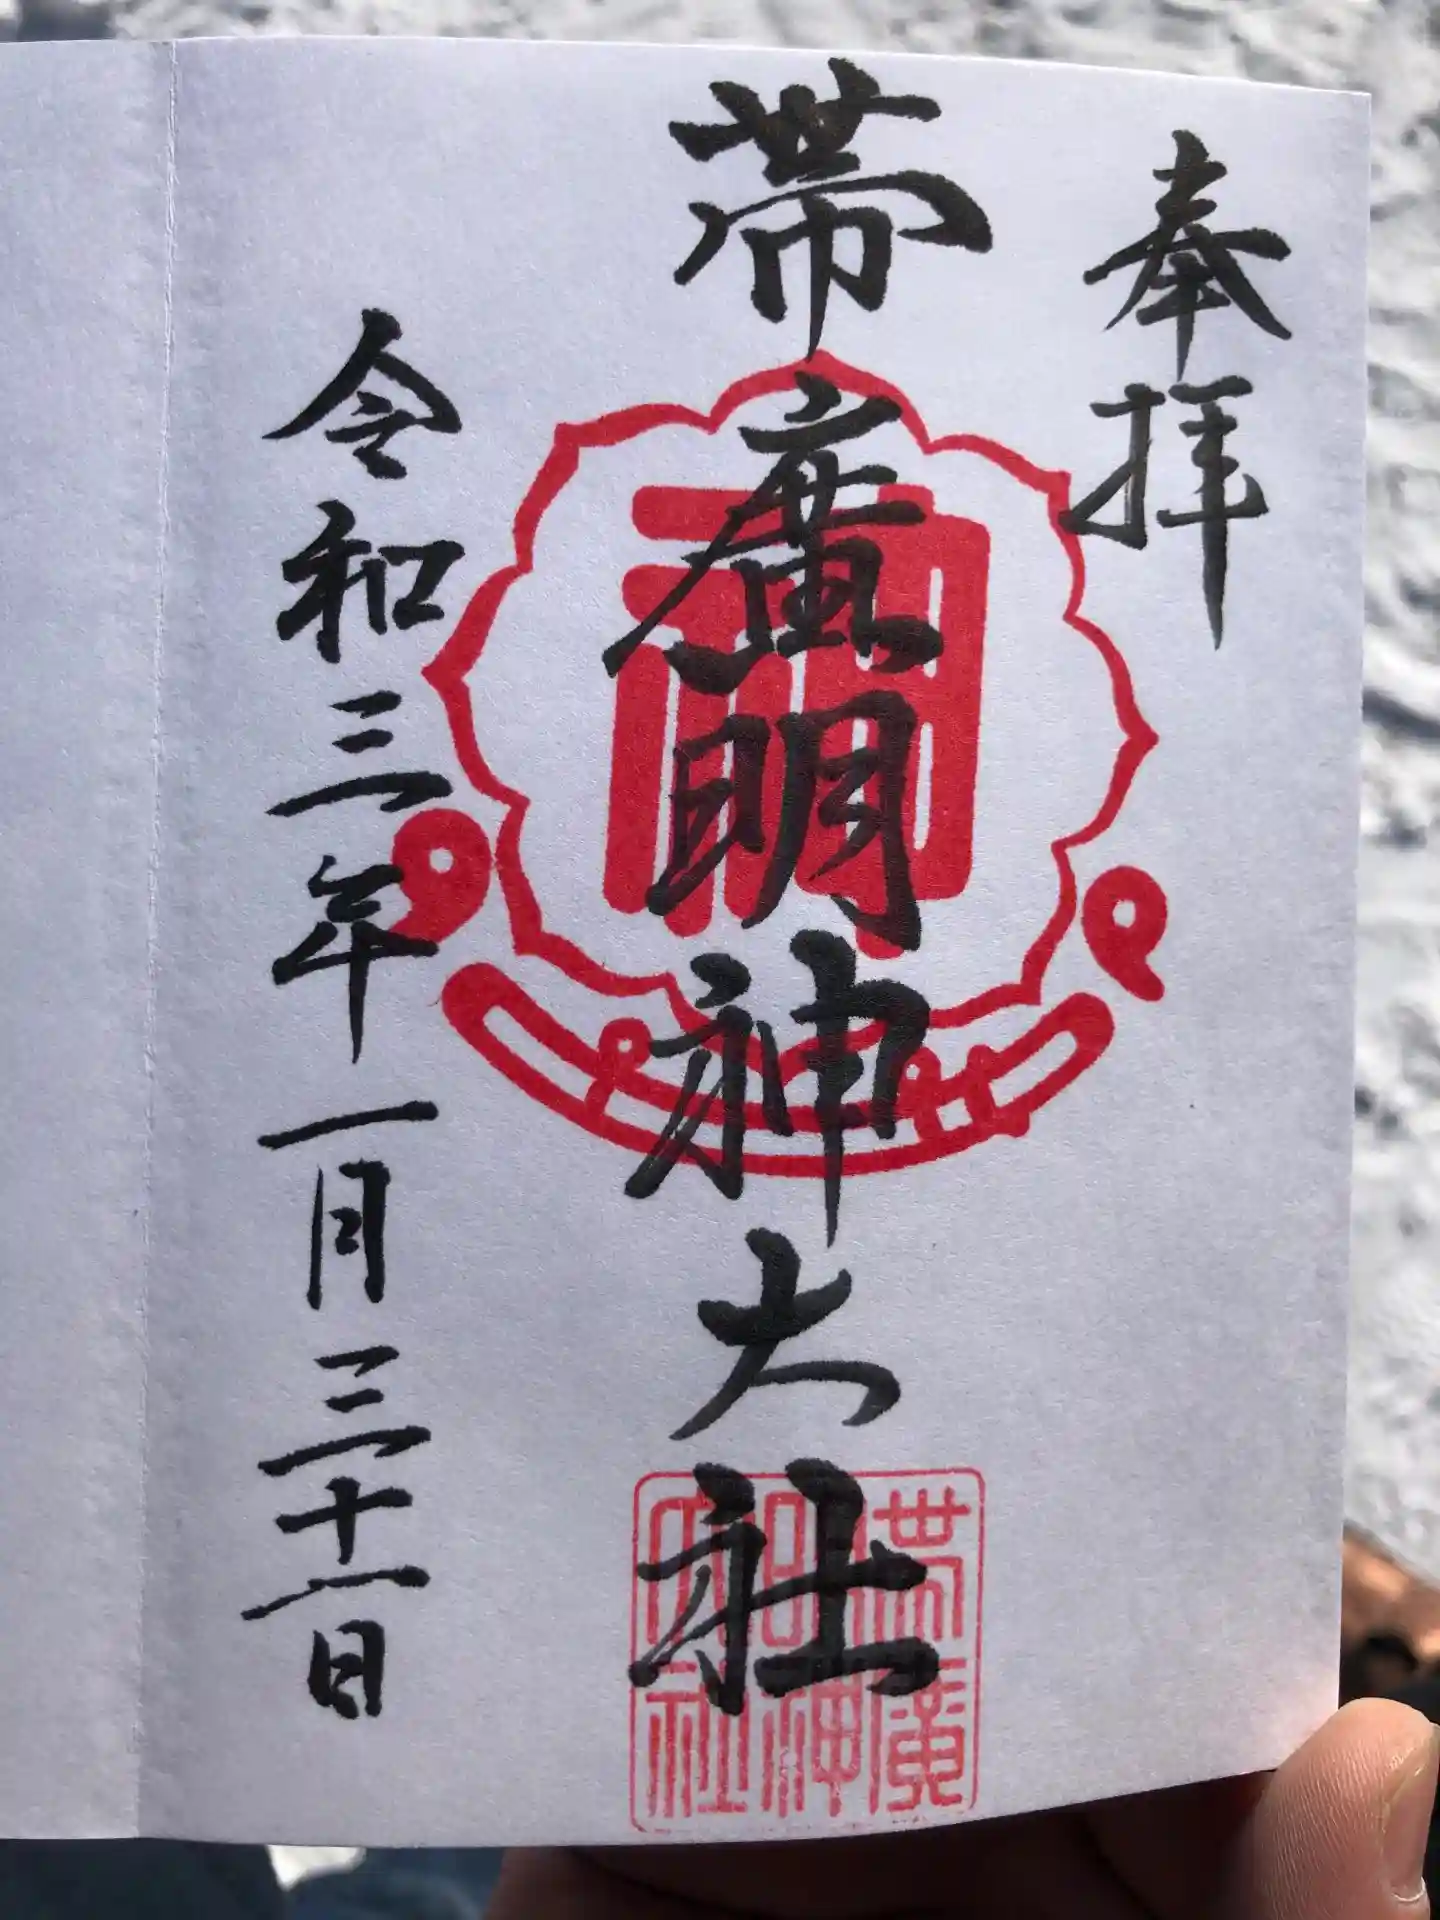 奉拝
帯廣明神大社
令和三年一月三十一日
神
帯廣
明神
大社